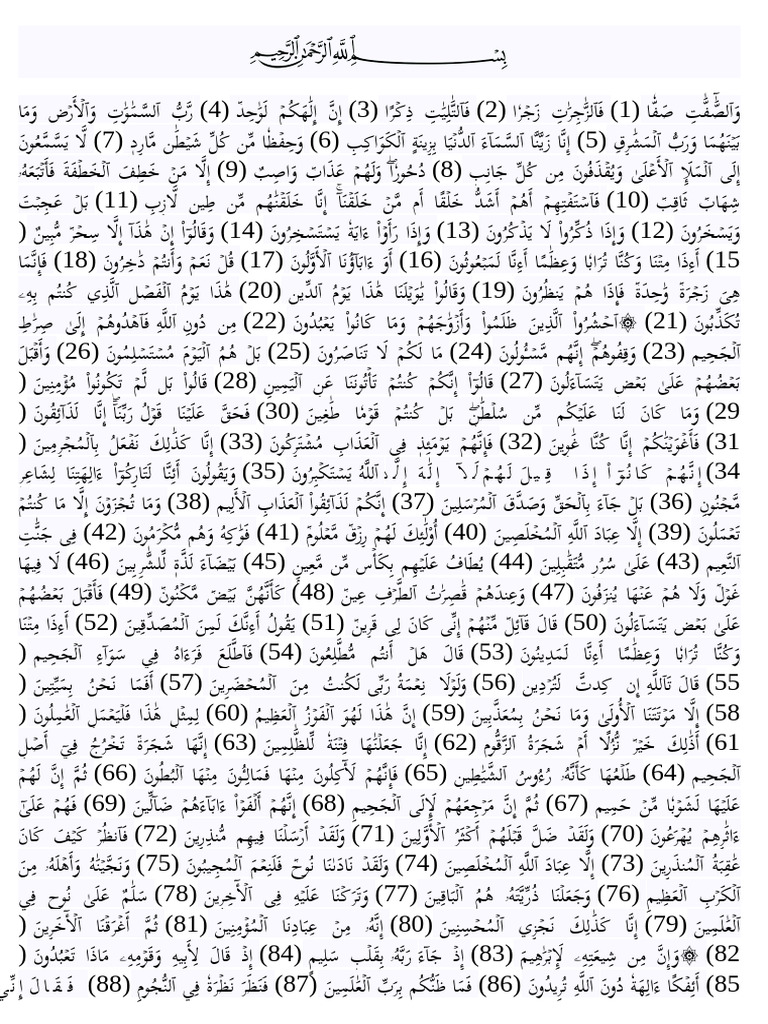 بِسۡــــــــــــــــــمِ ٱللَّهِ ٱلرَّحۡمَٰنِ ٱلرَّحِيمِ
وَٱلصَّٰٓفَّٰتِ صَفّٗا (1) فَٱلزَّٰجِرَٰتِ زَجۡرٗا (2) فَٱلتَّٰلِيَٰتِ ذِكۡرًا (3) إِنَّ إِلَٰهَكُمۡ لَوَٰحِدٞ (4) رَّبُّ ٱلسَّمَٰوَٰتِ وَٱلۡأَرۡضِ وَمَا
بَيۡنَهُمَا وَرَبُّ ٱلۡمَشَٰرِقِ (5) إِنَّا زَيَّنَّا ٱلسَّمَآءَ ٱلدُّنۡيَا بِزِينَةٍ ٱلۡكَوَاكِبِ (6) وَحِفۡظٗا مِّن كُلِّ شَيۡطَٰنٖ مَّارِدٖ (7) لَّا يَسَّمَّعُونَ
إِلَى ٱلۡمَلَإِ ٱلۡأَعۡلَىٰ وَيُقۡذَفُونَ مِن كُلِّ جَانِبٖ (8) دُحُورٗاۖ وَلَهُمۡ عَذَابٞ وَاصِبٌ (9) إِلَّا مَنۡ خَطِفَ ٱلۡخَطۡفَةَ فَأَتۡبَعَهُۥ
شِهَابٞ ثَاقِبٞ (10) فَٱسۡتَفۡتِهِمۡ أَهُمۡ أَشَدُّ خَلۡقًا أَم مَّنۡ خَلَقۡنَآۚ إِنَّا خَلَقۡنَٰهُم مِّن طِينٖ لَّازِبِۭ (11) بَلۡ عَجِبۡتَ
وَيَسۡخَرُونَ (12) وَإِذَا ذُكِّرُواْ لَا يَذۡكُرُونَ (13) وَإِذَا رَأَوۡاْ ءَايَةٗ يَسۡتَسۡخِرُونَ (14) وَقَالُوٓاْ إِنۡ هَٰذَآ إِلَّا سِحۡرٞ مُّبِينٌ (
15) أَءِذَا مِتۡنَا وَكُنَّا تُرَابٗا وَعِظَٰمًا أَءِنَّا لَمَبۡعُوثُونَ (16) أَوَ ءَابَآؤُنَا ٱلۡأَوَّلُونَ (17) قُلۡ نَعَمۡ وَأَنتُمۡ دَٰخِرُونَ (18) فَإِنَّمَا
هِيَ زَجۡرَةٞ وَٰحِدَةٞ فَإِذَا هُمۡ يَنظُرُونَ (19) وَقَالُواْ يَٰوَيۡلَنَا هَٰذَا يَوۡمُ ٱلدِّينِ (20) هَٰذَا يَوۡمُ ٱلۡفَصۡلِ ٱلَّذِي كُنتُم بِهِۦ
تُكَذِّبُونَ (21) ۞ٱحۡشُرُواْ ٱلَّذِينَ ظَلَمُواْ وَأَزۡوَٰجَهُمۡ وَمَا كَانُواْ يَعۡبُدُونَ (22) مِن دُونِ ٱللَّهِ فَٱهۡدُوهُمۡ إِلَىٰ صِرَٰطِ
ٱلۡجَحِيمِ (23) وَقِفُوهُمۡۖ إِنَّهُم مَّسۡـُٔولُونَ (24) مَا لَكُمۡ لَا تَنَاصَرُونَ (25) بَلۡ هُمُ ٱلۡيَوۡمَ مُسۡتَسۡلِمُونَ (26) وَأَقۡبَلَ
بَعۡضُهُمۡ عَلَىٰ بَعۡضٖ يَتَسَآءَلُونَ (27) قَالُوٓاْ إِنَّكُمۡ كُنتُمۡ تَأۡتُونَنَا عَنِ ٱلۡيَمِينِ (28) قَالُواْ بَل لَّمۡ تَكُونُواْ مُؤۡمِنِينَ (
29) وَمَا كَانَ لَنَا عَلَيۡكُم مِّن سُلۡطَٰنِۭۖ بَلۡ كُنتُمۡ قَوۡمٗا طَٰغِينَ (30) فَحَقَّ عَلَيۡنَا قَوۡلُ رَبِّنَآۖ إِنَّا لَذَآئِقُونَ (
31) فَأَغۡوَيۡنَٰكُمۡ إِنَّا كُنَّا غَٰوِينَ (32) فَإِنَّهُمۡ يَوۡمَئِذٖ فِي ٱلۡعَذَابِ مُشۡتَرِكُونَ (33) إِنَّا كَذَٰلِكَ نَفۡعَلُ بِٱلۡمُجۡرِمِينَ (
34) إِنَّهُمۡ كَانُوٓاْ إِذَا قِيلَ لَهُمۡ لَآ إِلَٰهَ إِلَّا ٱللَّهُ يَسۡتَكۡبِرُونَ (35) وَيَقُولُونَ أَئِنَّا لَتَارِكُوٓاْ ءَالِهَتِنَا لِشَاعِرٖ
مَّجۡنُونِۭ (36) بَلۡ جَآءَ بِٱلۡحَقِّ وَصَدَّقَ ٱلۡمُرۡسَلِينَ (37) إِنَّكُمۡ لَذَآئِقُواْ ٱلۡعَذَابِ ٱلۡأَلِيمِ (38) وَمَا تُجۡزَوۡنَ إِلَّا مَا كُنتُمۡ
تَعۡمَلُونَ (39) إِلَّا عِبَادَ ٱللَّهِ ٱلۡمُخۡلَصِينَ (40) أُوْلَٰٓئِكَ لَهُمۡ رِزۡقٞ مَّعۡلُومٞ (41) فَوَٰكِهُ وَهُم مُّكۡرَمُونَ (42) فِي جَنَّٰتِ
ٱلنَّعِيمِ (43) عَلَىٰ سُرُرٖ مُّتَقَٰبِلِينَ (44) يُطَافُ عَلَيۡهِم بِكَأۡسٖ مِّن مَّعِينِۭ (45) بَيۡضَآءَ لَذَّةٖ لِّلشَّٰرِبِينَ (46) لَا فِيهَا
غَوۡلٞ وَلَا هُمۡ عَنۡهَا يُنزَفُونَ (47) وَعِندَهُمۡ قَٰصِرَٰتُ ٱلطَّرۡفِ عِينٞ (48) كَأَنَّهُنَّ بَيۡضٞ مَّكۡنُونٞ (49) فَأَقۡبَلَ بَعۡضُهُمۡ
عَلَىٰ بَعۡضٖ يَتَسَآءَلُونَ (50) قَالَ قَآئِلٞ مِّنۡهُمۡ إِنِّي كَانَ لِي قَرِينٞ (51) يَقُولُ أَءِنَّكَ لَمِنَ ٱلۡمُصَدِّقِينَ (52) أَءِذَا مِتۡنَا
وَكُنَّا تُرَابٗا وَعِظَٰمًا أَءِنَّا لَمَدِينُونَ (53) قَالَ هَلۡ أَنتُم مُّطَّلِعُونَ (54) فَٱطَّلَعَ فَرَءَاهُ فِي سَوَآءِ ٱلۡجَحِيمِ (
55) قَالَ تَٱللَّهِ إِن كِدتَّ لَتُرۡدِينِ (56) وَلَوۡلَا نِعۡمَةُ رَبِّي لَكُنتُ مِنَ ٱلۡمُحۡضَرِينَ (57) أَفَمَا نَحۡنُ بِمَيِّتِينَ (
58) إِلَّا مَوۡتَتَنَا ٱلۡأُولَىٰ وَمَا نَحۡنُ بِمُعَذَّبِينَ (59) إِنَّ هَٰذَا لَهُوَ ٱلۡفَوۡزُ ٱلۡعَظِيمُ (60) لِمِثۡلِ هَٰذَا فَلۡيَعۡمَلِ ٱلۡعَٰمِلُونَ (
61) أَذَٰلِكَ خَيۡرٞ نُّزُلًا أَمۡ شَجَرَةُ ٱلزَّقُّومِ (62) إِنَّا جَعَلۡنَٰهَا فِتۡنَةٗ لِّلظَّٰلِمِينَ (63) إِنَّهَا شَجَرَةٞ تَخۡرُجُ فِيٓ أَصۡلِ
ٱلۡجَحِيمِ (64) طَلۡعُهَا كَأَنَّهُۥ رُءُوسُ ٱلشَّيَٰطِينِ (65) فَإِنَّهُمۡ لَأٓكِلُونَ مِنۡهَا فَمَالِـُٔونَ مِنۡهَا ٱلۡبُطُونَ (66) ثُمَّ إِنَّ لَهُمۡ
عَلَيۡهَا لَشَوۡبٗا مِّنۡ حَمِيمٖ (67) ثُمَّ إِنَّ مَرۡجِعَهُمۡ لَإِلَى ٱلۡجَحِيمِ (68) إِنَّهُمۡ أَلۡفَوۡاْ ءَابَآءَهُمۡ ضَآلِّينَ (69) فَهُمۡ عَلَىٰٓ
ءَاثَٰرِهِمۡ يُهۡرَعُونَ (70) وَلَقَدۡ ضَلَّ قَبۡلَهُمۡ أَكۡثَرُ ٱلۡأَوَّلِينَ (71) وَلَقَدۡ أَرۡسَلۡنَا فِيهِم مُّنذِرِينَ (72) فَٱنظُرۡ كَيۡفَ كَانَ
عَٰقِبَةُ ٱلۡمُنذَرِينَ (73) إِلَّا عِبَادَ ٱللَّهِ ٱلۡمُخۡلَصِينَ (74) وَلَقَدۡ نَادَىٰنَا نُوحٞ فَلَنِعۡمَ ٱلۡمُجِيبُونَ (75) وَنَجَّيۡنَٰهُ وَأَهۡلَهُۥ مِنَ
ٱلۡكَرۡبِ ٱلۡعَظِيمِ (76) وَجَعَلۡنَا ذُرِّيَّتَهُۥ هُمُ ٱلۡبَاقِينَ (77) وَتَرَكۡنَا عَلَيۡهِ فِي ٱلۡأٓخِرِينَ (78) سَلَٰمٌ عَلَىٰ نُوحٖ فِي
ٱلۡعَٰلَمِينَ (79) إِنَّا كَذَٰلِكَ نَجۡزِي ٱلۡمُحۡسِنِينَ (80) إِنَّهُۥ مِنۡ عِبَادِنَا ٱلۡمُؤۡمِنِينَ (81) ثُمَّ أَغۡرَقۡنَا ٱلۡأٓخَرِينَ (
82) ۞وَإِنَّ مِن شِيعَتِهِۦ لَإِبۡرَٰهِيمَ (83) إِذۡ جَآءَ رَبَّهُۥ بِقَلۡبٖ سَلِيمٍ (84) إِذۡ قَالَ لِأَبِيهِ وَقَوۡمِهِۦ مَاذَا تَعۡبُدُونَ (
85) أَئِفۡكًا ءَالِهَةٗ دُونَ ٱللَّهِ تُرِيدُونَ (86) فَمَا ظَنُّكُم بِرَبِّ ٱلۡعَٰلَمِينَ (87) فَنَظَرَ نَظۡرَةٗ فِي ٱلنُّجُومِ (88) فَقَالَ إِنِّي